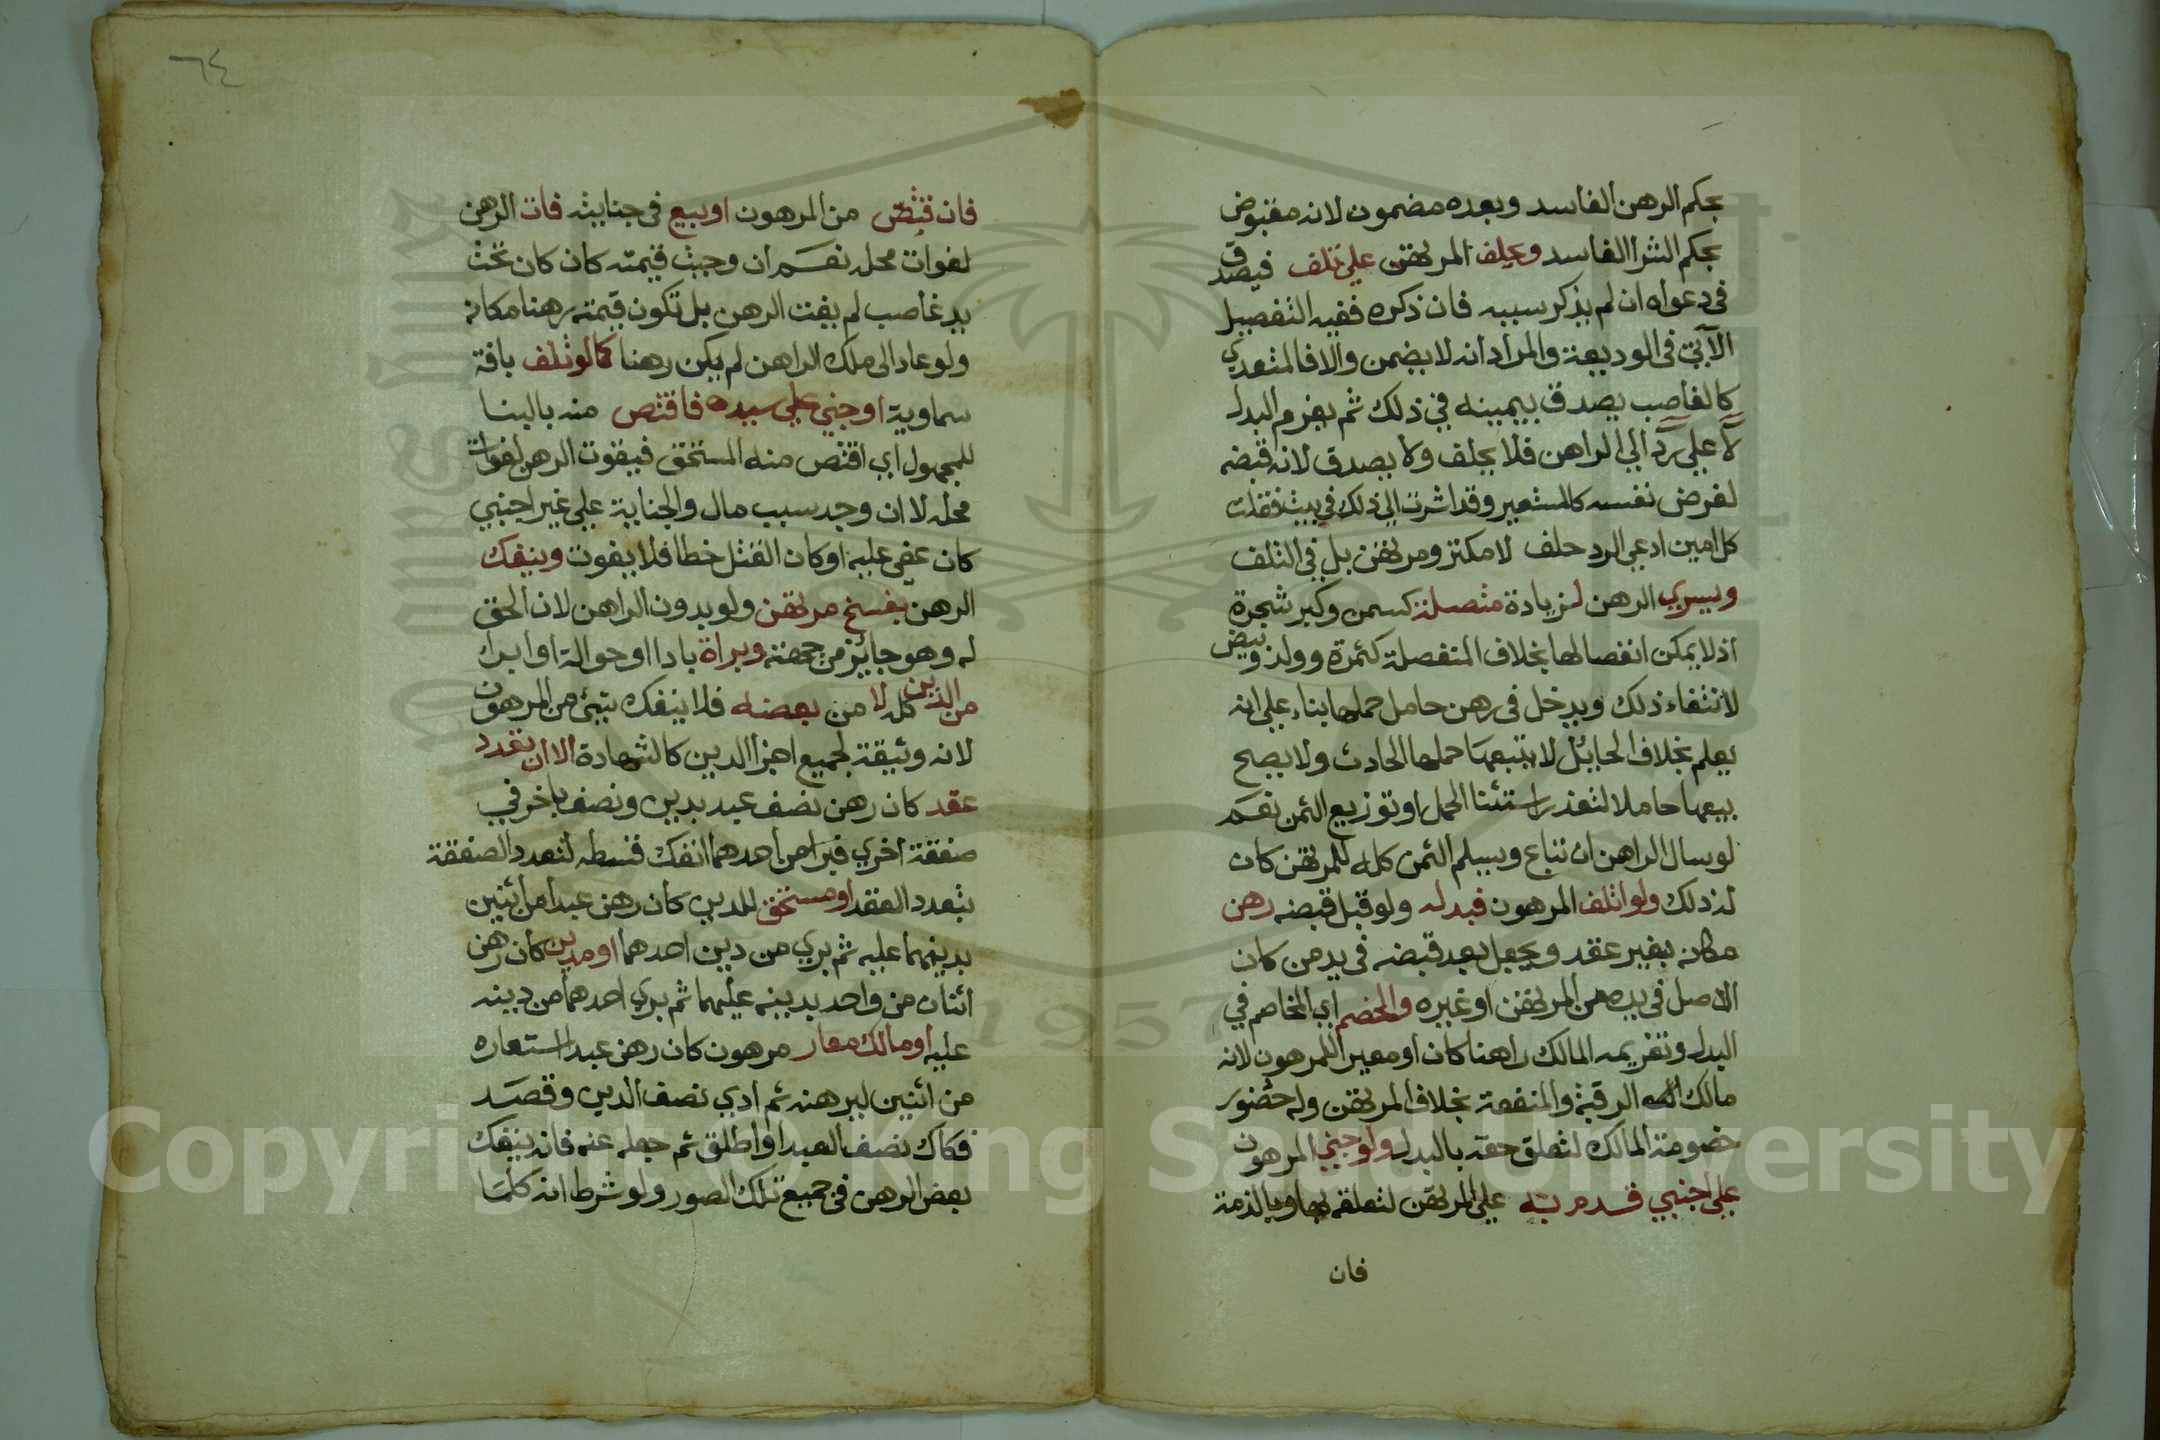 بحكم الرهن الفاسد وبعده مضمون لانه مقبوض
بحكم الشرا الفاسد وحلف المرتهن علي تلف فيصدق
في دعواه ان لم يذكر سببه فان ذكره ففيه التفصيل
الآتي في الوديعة والمراد انه لا يضمن والا فالمتعدي
كالغاصب يصدق بيمينه في ذلك ثم يغرم البدل
لا علي رد الي الراهن فلا يحلف ولا يصدق لانه قبضه
لغرض نفسه كالمستعير وقد اشرت الي ذلك في بيت فقلت
كل امين ادعي الرد حلف لا مكتر ومرتهن بل في التلف
ويسري الرهن لزيادة متصلة كسمن وكبر شجرة
اذ لا يمكن انفصالها بخلاف المنفصلة كثمرة وولد وبيض
لانتفاء ذلك ويدخل في رهن حامل حملها بناء علي انه
يعلم بخلاف الحايل لا يتبعها حملها الحادث ولا يصح
بيعها حاملا لتعذر استثنا الحمل او توزيع الثمن نعم
لو سال الراهن ان تباع ويسلم الثمن كله للمرتهن كان
له ذلك ولو اتلف المرهون فبدله ولو قبل قبضه رهن
مكانه بغير عقد ويجعل بعد قبضه في يد من كان
الاصل في يده من المرتهن او غيره والخصم اي المخاصم في
البدل وتغريمه المالك راهنا كان او معيرا للمرهون لانه
مالك الرقبة والمنفعة بخلاف المرتهن وله حضور
خصومة المالك لتعلق حقه بالبدل ولو جني المرهون
علي اجنبي قدم به علي المرتهن لتعلقه بها وبالذمة
فان
٦٤
فان قتص من المرهون او بيع في جنايته فات الرهن
لفوات محله نعم ان وجبت قيمته كان كان تحت
يد غاصب لم يفت الرهن بل تكون قيمته رهنا مكانه
ولو عاد الي ملك الراهن لم يكن رهنا كما لو تلف بافة
سماوية او جني علي سيده فاقتص منه بالبنا
للمجهول اي اقتص منه المستحق فيفوت الرهن لفوات
محله لا ان وجد سبب مال والجناية علي غير اجنبي
كان عفي عليه او كان القتل خطا فلا يفوت وينفك
الرهن بفسخ مرتهن ولو بدون الراهن لان الحق
له وهو جايز من جهته وبراة بادا او حوالة او ابراء
من الدين كله لا من بعضه فلا ينفك شي من المرهون
لانه وثيقة لجميع اجزا الدين كالشهادة الا ان تعدد
عقد كان رهن نصف عبد بدين ونصف باخر في
صفقة اخري فبرا من احدهما انفك قسطه لتعدد الصفقة
بتعدد العقد او مستحق للدين كان رهن عبدا من اثنين
بدينهما عليه ثم بري من دين احدهما او مدين كان رهن
اثنان من واحد بدينه عليهما ثم بري احدهما من دينه
عليه او مالك معار مرهون كان رهن عبد استعاره
من اثنين ليرهنه ثم ادي نصف الدين وقصد
فكاك نصف العبد او اطلق ثم جعله عنه فانه ينفك
بعض الرهن في جميع تلك الصور ولو شرط انه كلما
Copyright © King Saud University
1957